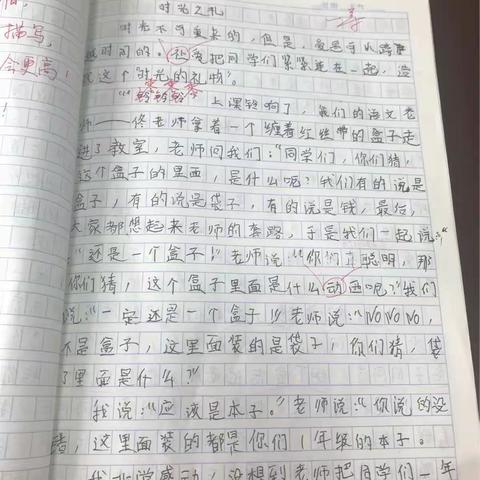 描写，
会更高！
时光之礼
时光不可重来的，但是，爱是可以跨
越时间的。让爱把同学们紧紧连在一起，
这个“时光的礼物”。
“铃铃铃”上课铃响了，我们的语文老
师——佟老师拿着一个缠着红丝带的盒子走
进了教室，老师问我们：“同学们，你们猜，
这个盒子的里面，是什么呢？我们有的说是
盒子，有的说是袋子，有的说是钱，最后，
大家都想起来老师的套路，于是我们一起说：“
“还是一个盒子！”老师说：“你们真聪明，那
你们猜，这个盒子里面是什么动画呢？”我们
说：“一定还是一个盒子！”老师说：“NO NO NO，
不是盒子，这里面装的是袋子，你们猜，袋
子里面是什么？”
我说：“应该是本子。”老师说：“你说的没
错，这里面装的都是你们1年级的本子。
我非常感动，没想到老师把同学们一年